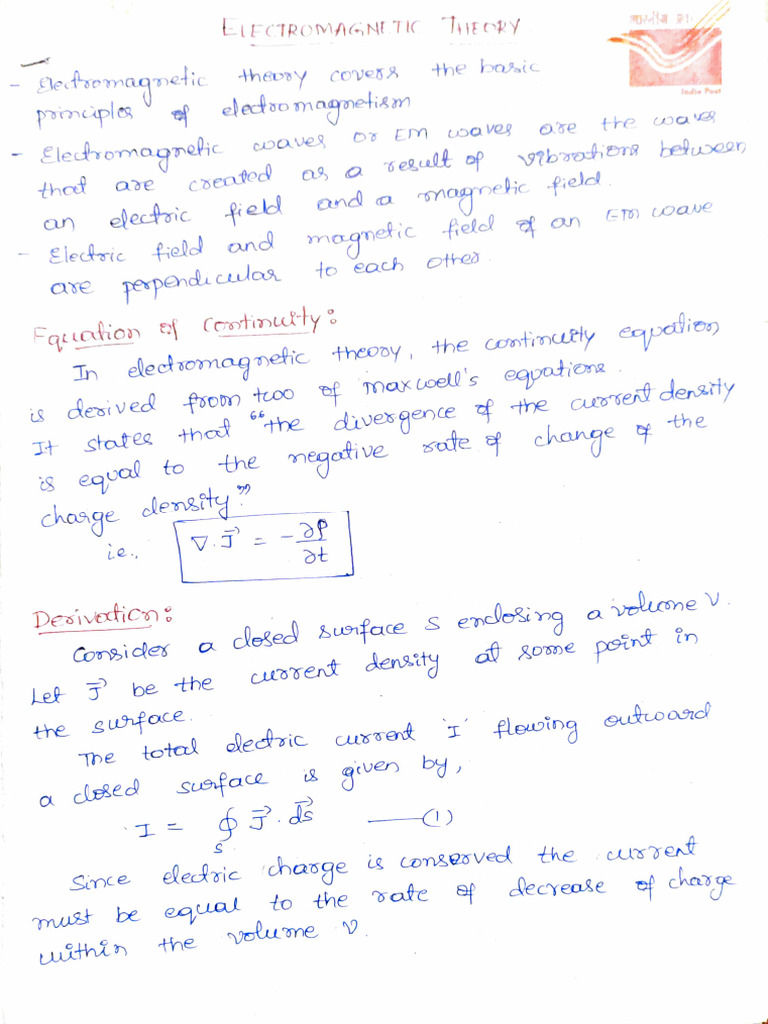 ELECTROMAGNETIC THEORY
भारतीय डाक
India Post
- Electromagnetic theory covers the basic
principles of electromagnetism
- Electromagnetic waves or EM waves are the waves
that are created as a result of vibrations between
an electric field and a magnetic field.
- Electric field and magnetic field of an EM wave
are perpendicular to each other.
Equation of Continuity:
In electromagnetic theory, the continuity equation
is derived from two of maxwell's equations.
It states that "the divergence of the current density
is equal to the negative rate of change of the
charge density."
i.e., ∇.J⃗ = -∂ρ/∂t
Derivation:
Consider a closed surface S enclosing a volume V.
Let J⃗ be the current density at some point in
the surface.
The total electric current 'I' flowing outward
a closed surface is given by,
I = ∮_S J⃗. d⃗s —(1)
Since electric charge is conserved the current
must be equal to the rate of decrease of charge
within the volume V.